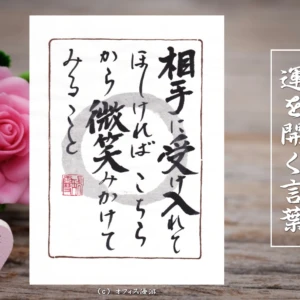 相手に受け入れて
ほしければこちら
から微笑みかけて
みること
運を開く言葉
(c) オフィス湧泚